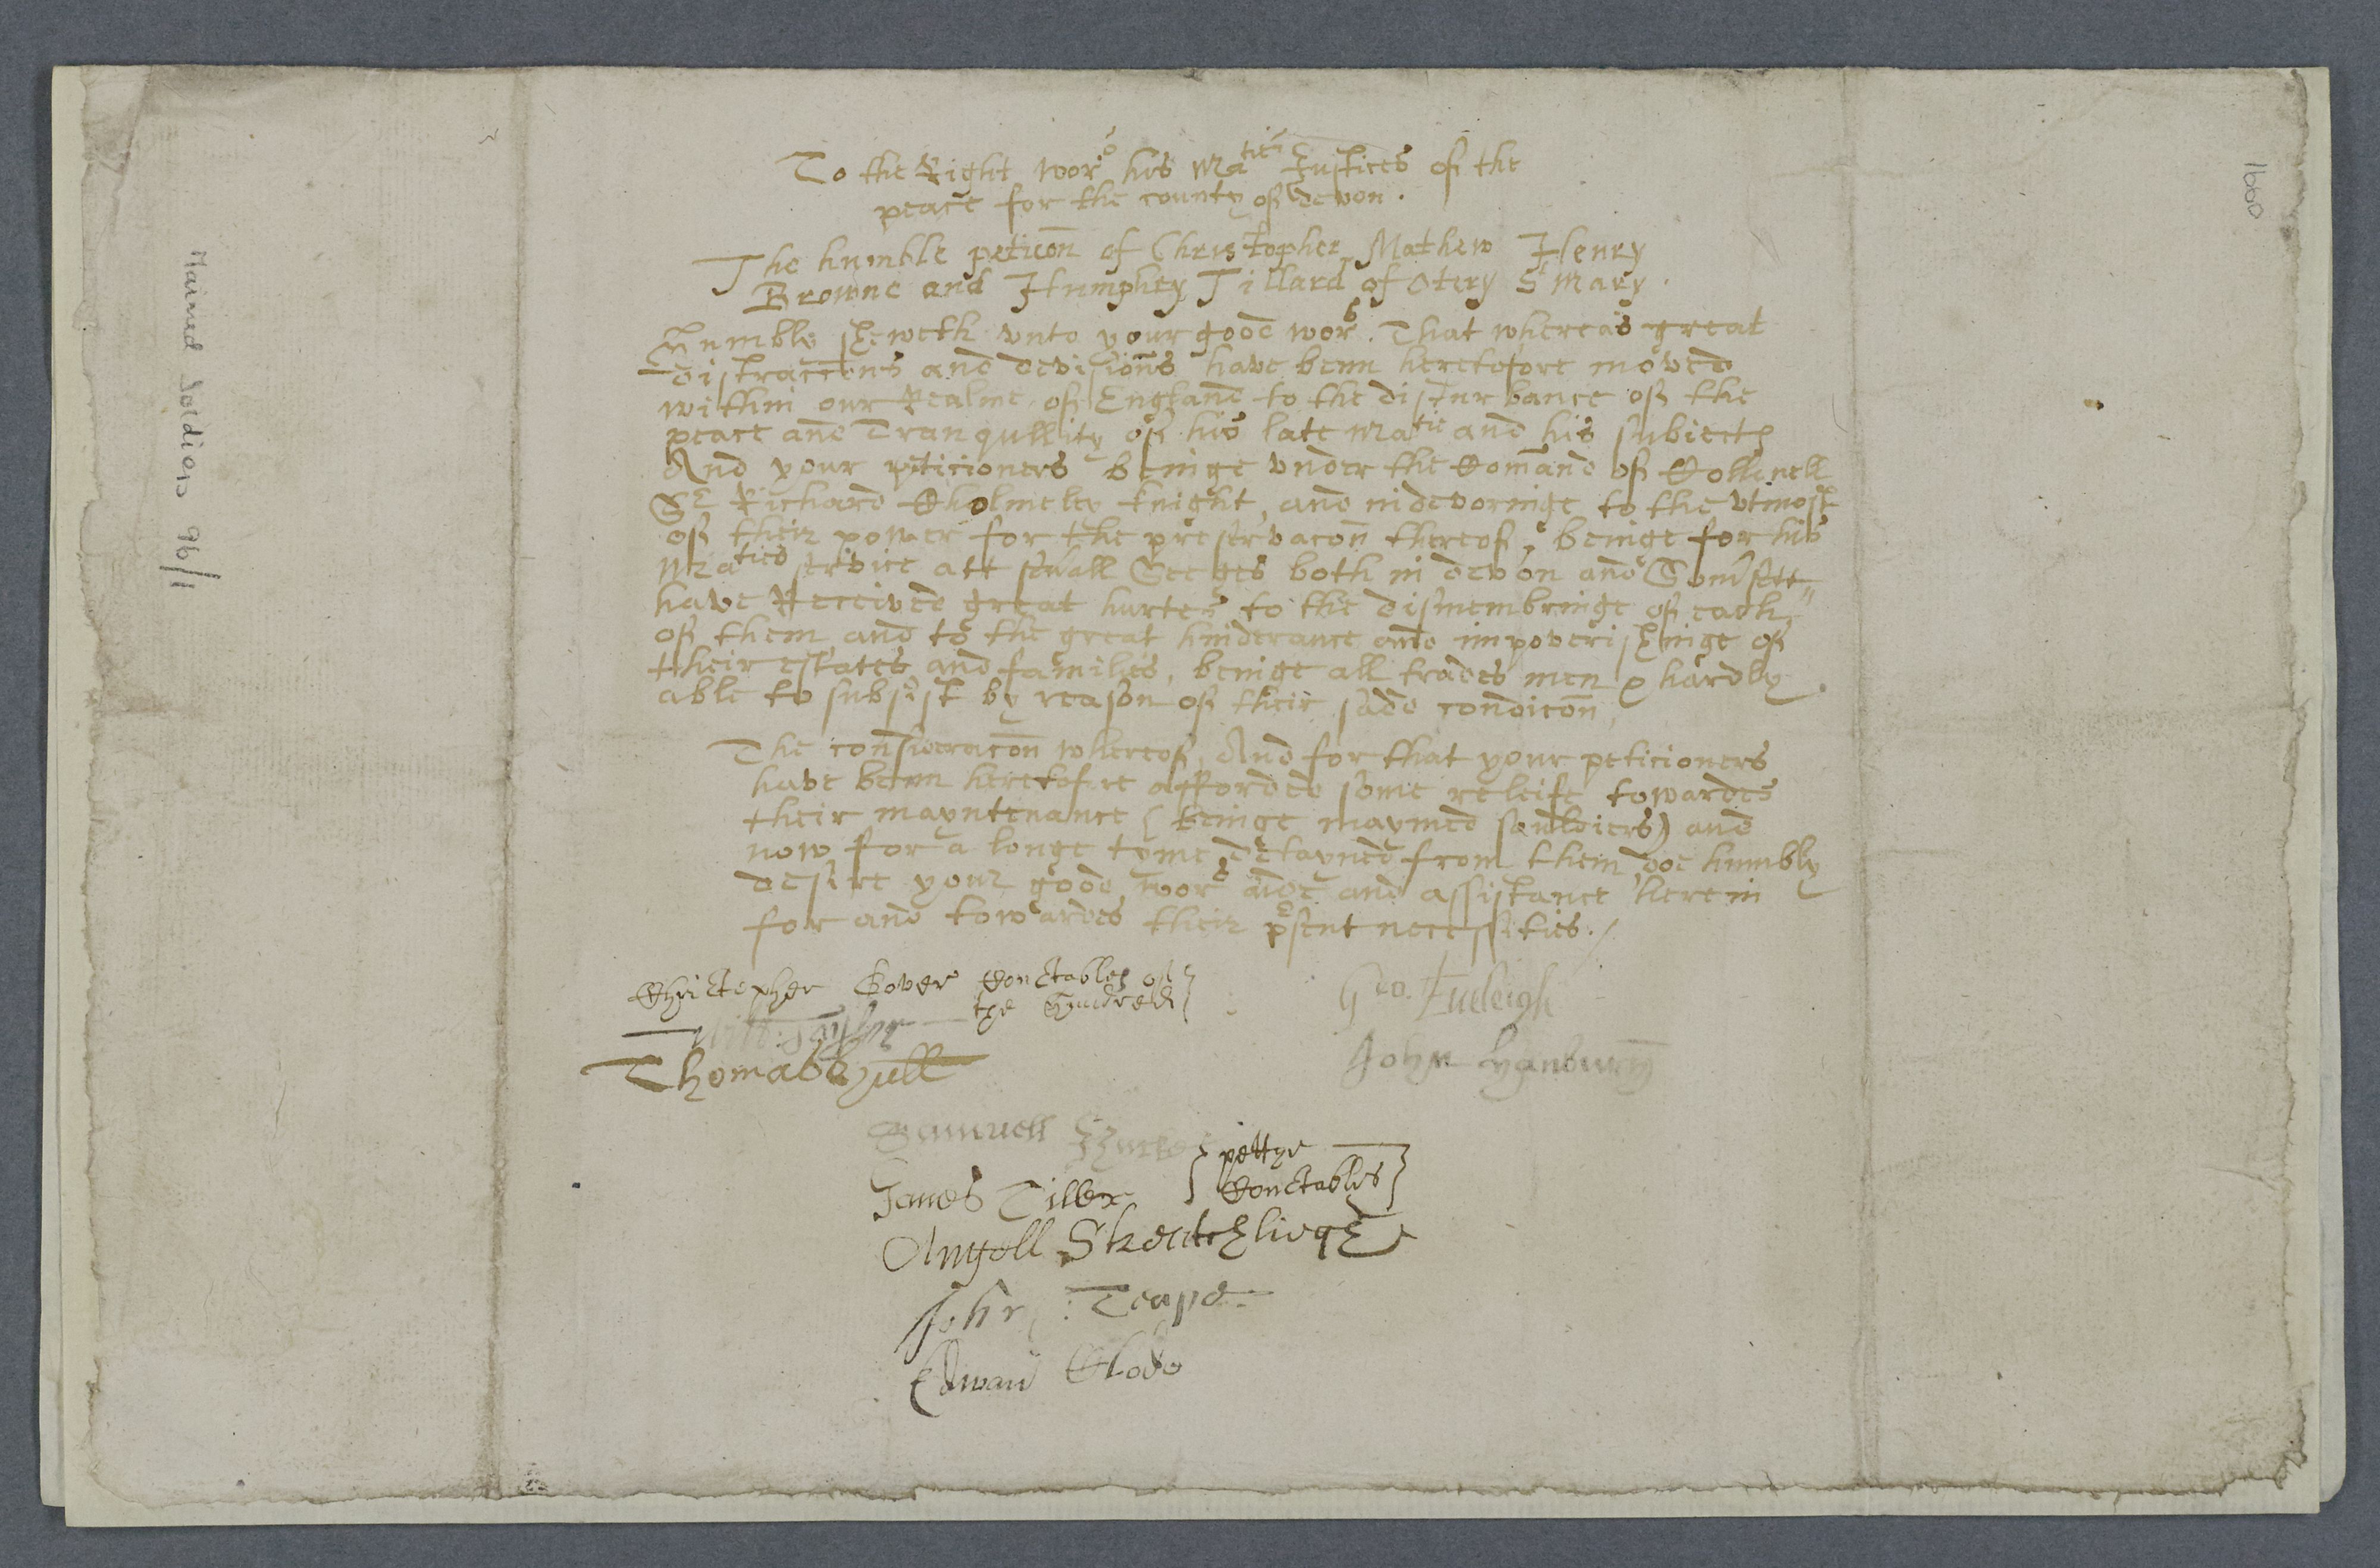 To the Right wor his Ma:ties Justices of the
peace for the county of devon.
The humble peticon of Christopher Mathew Henry
Browne and Humphey Tillard of Otery St Mary.
Humble sheweth vnto your good wors. That whereas great
distraccons and devisions have benn heretofore moved
within our Realme of England to the disturbance of the
peace and Tranqullity of his late Matie and his subiects
And your peticioners beinge vnder the Comand of Collenell
Sr Richard Cholmeley knight, and indevoringe to the vtmost
of their power for the preservacon thereof, beinge for his
Maties service att seuall Seeges both in devon and Somsett
have Received great hurtes to the dismembringe of each
of them and to the great hinderance and impoverishinge of
their estates and families, beinge all trades men & hardly
able to subsist by reason of their sade condicon,
The consideracon whereof, And for that your peticioners
have benn heretofore afforded some releife towardes
their mayntenance (beinge maymed souldiers) and
now for a longe tyme detayned from them, doe humbly
desire your good wors aide and assistance herein
for and towardes their psent necessities./
Christopher Cover Constables of
the Hundred
Will: Taylor
Thomas Hull
Geo. Fudeigh
John Hanbury
Samuell
James Tiller pettye
Constables
Angell
John : Teape
Edward Clode
Maimed Soldiers 96/1
1660